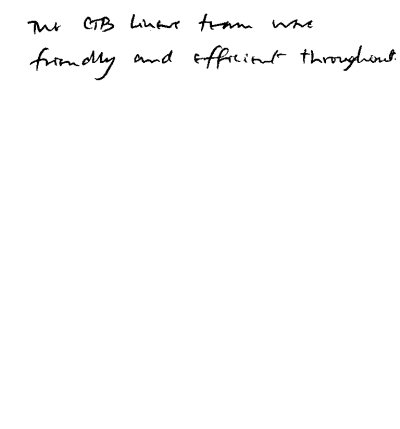 The GTB Linear team were
friendly and efficient throughout.